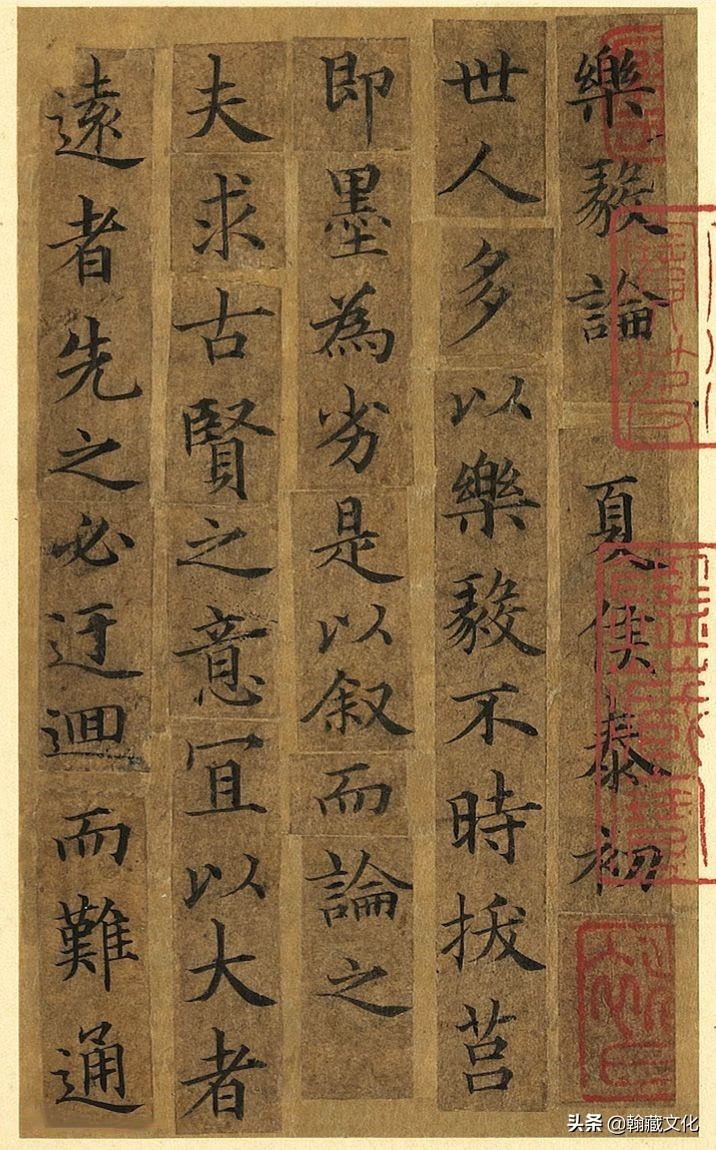 樂毅論 夏侯泰初
世人多以樂毅不時拔莒
即墨為劣是以叙而論之
夫求古賢之意宜以大者
遠者先之必迂迴而難通
头条 @翰藏文化